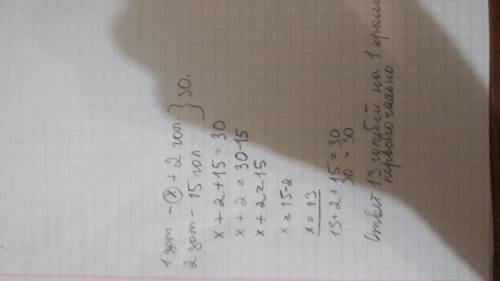 1 зоп - x + 2 гол. } 30.
2 зоп - 15 гол.
x + 2 + 15 = 30
x + 2 = 30 - 15
x + 2 = 15
x = 15 - 2
x = 13
13 + 2 + 15 = 30
30 = 30
Ответ 13 голубей на 1
первоначально.